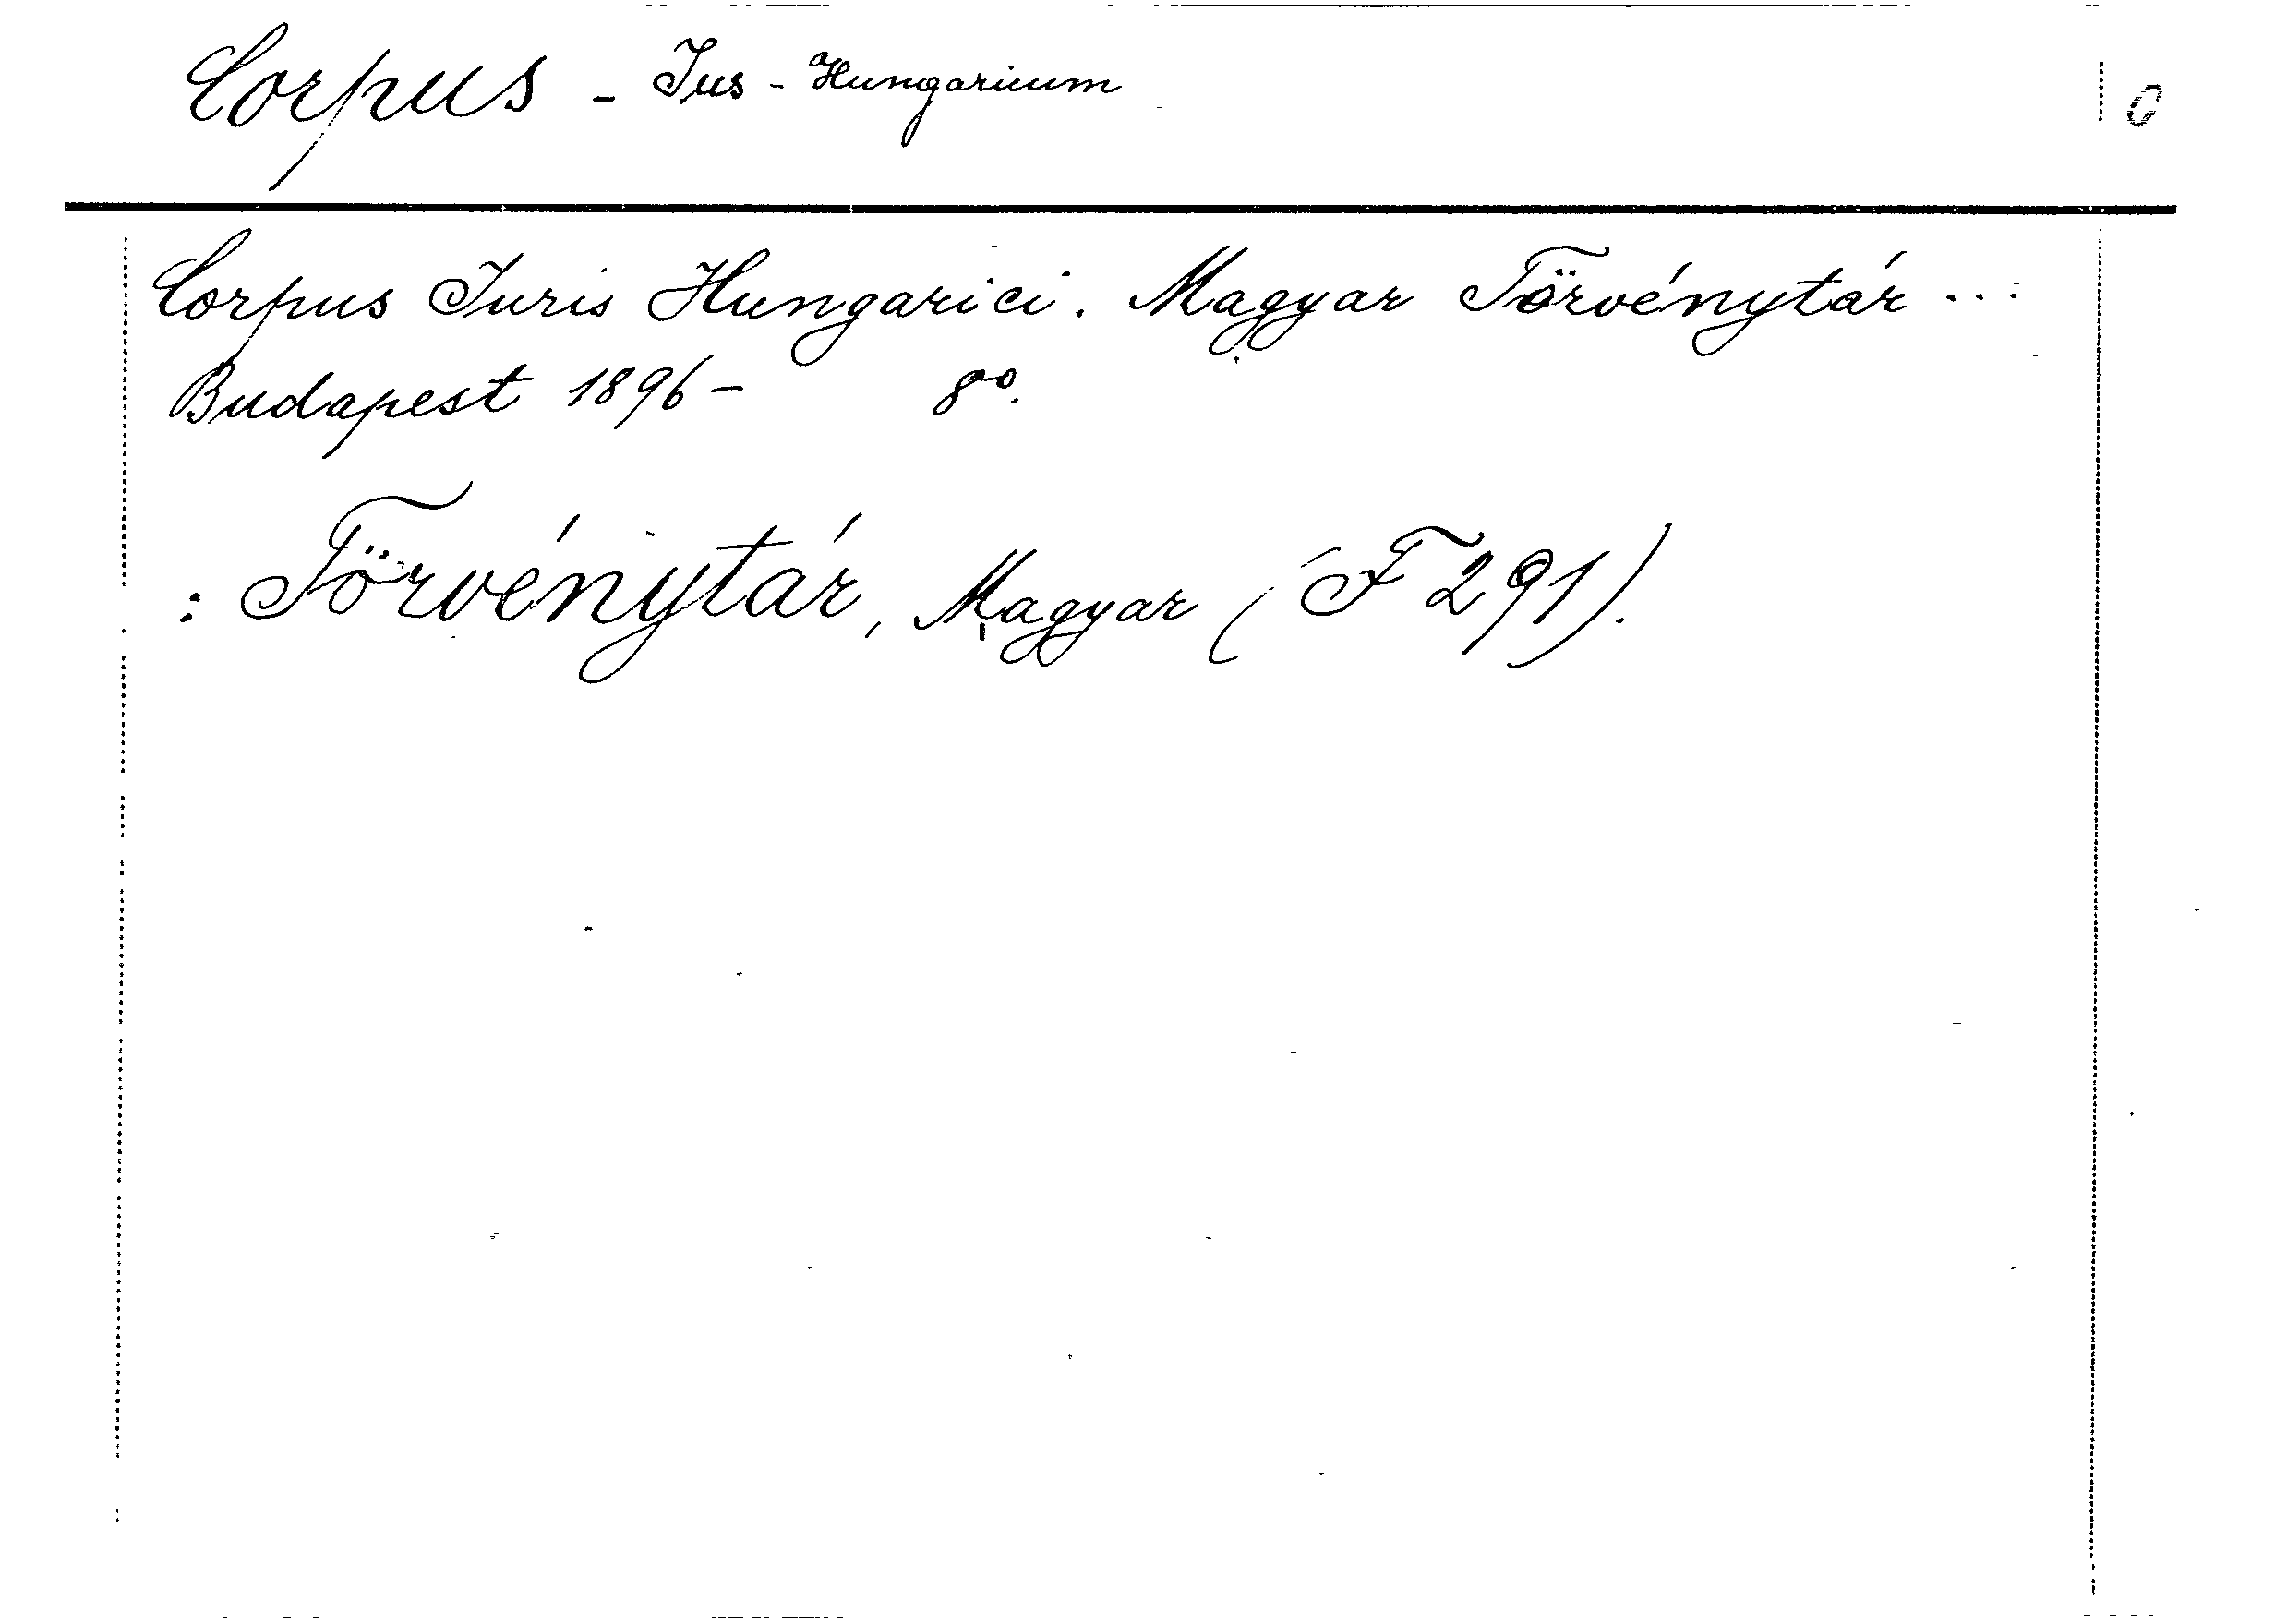 Corpus - Jus - Hungaricum C
Corpus Juris Hungarici. Magyar Törvénytár ...
Budapest 1896- 8º.
: Törvénytár, Magyar (F 291).